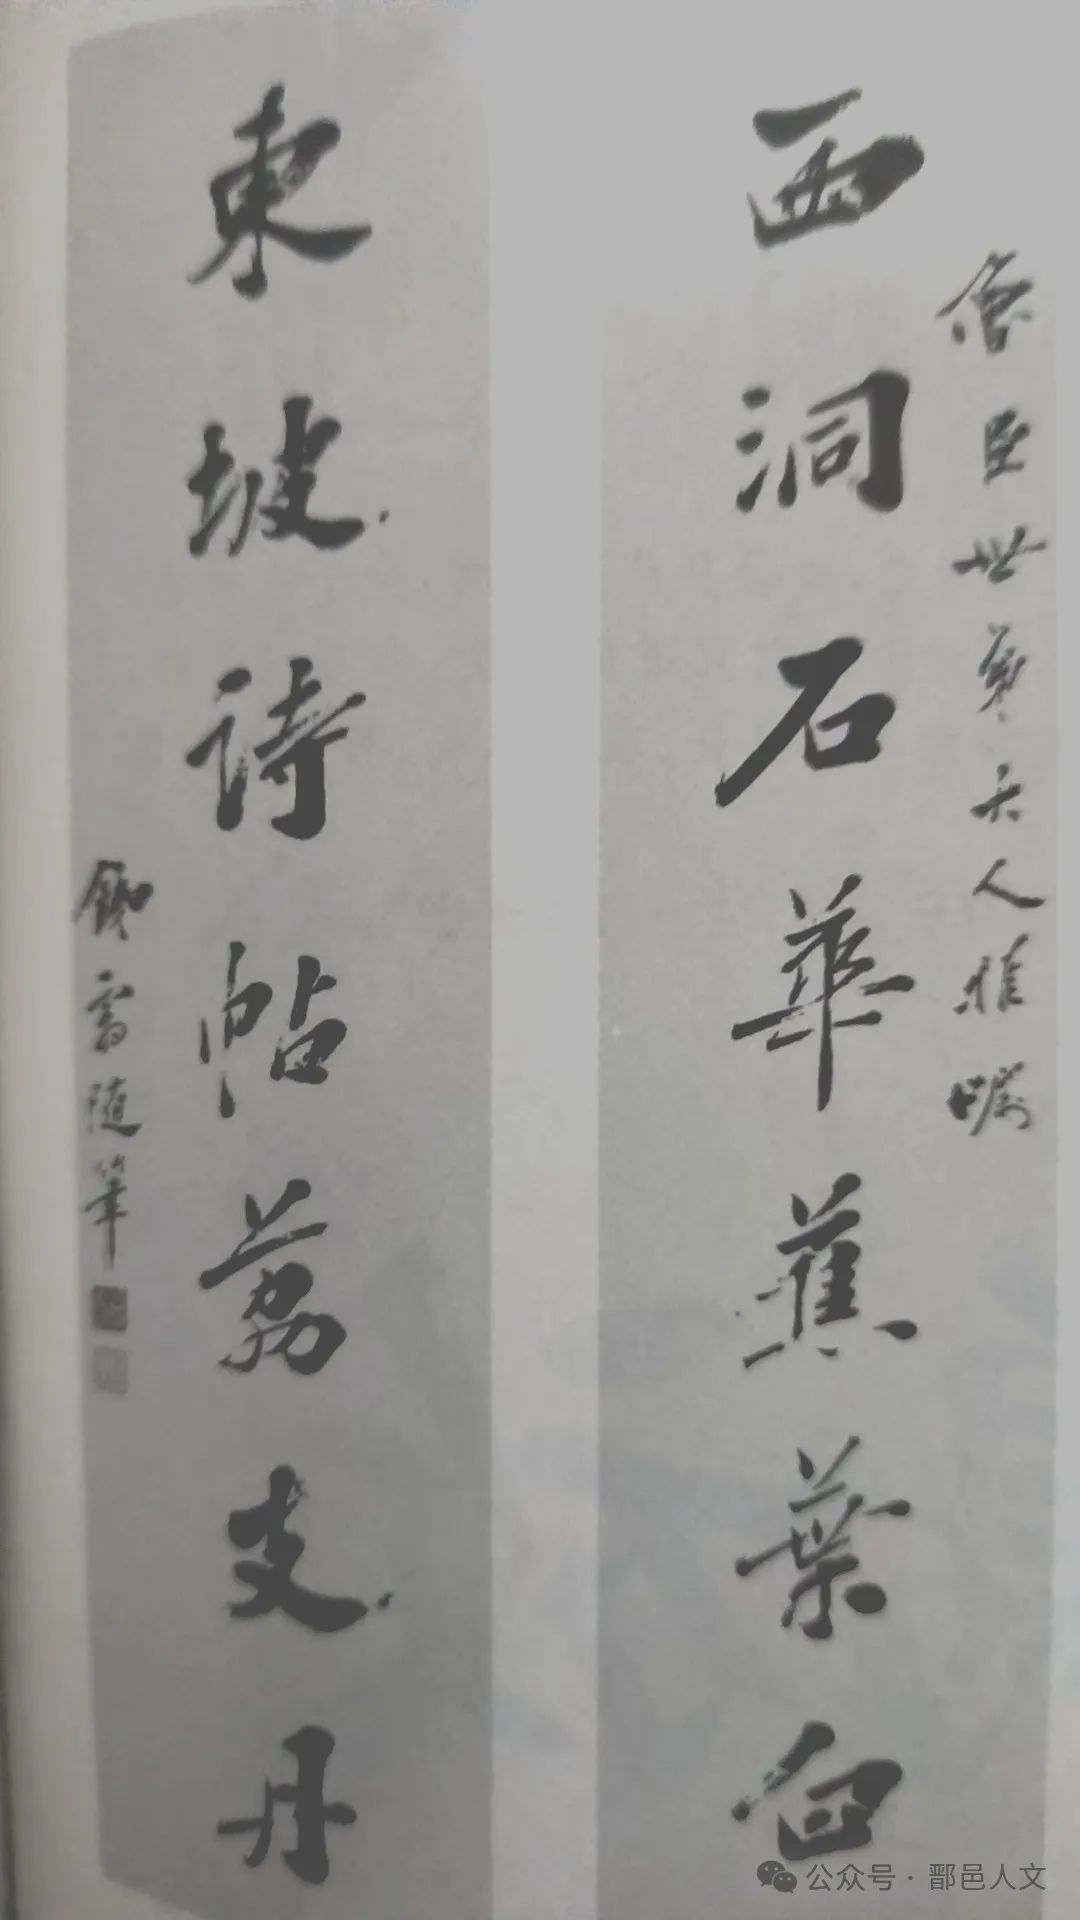 西洞石華蕉葉白
臣世弟大人雅嘱
東坡詩帖荔支丹
随筆
公众号·鄑邑人文